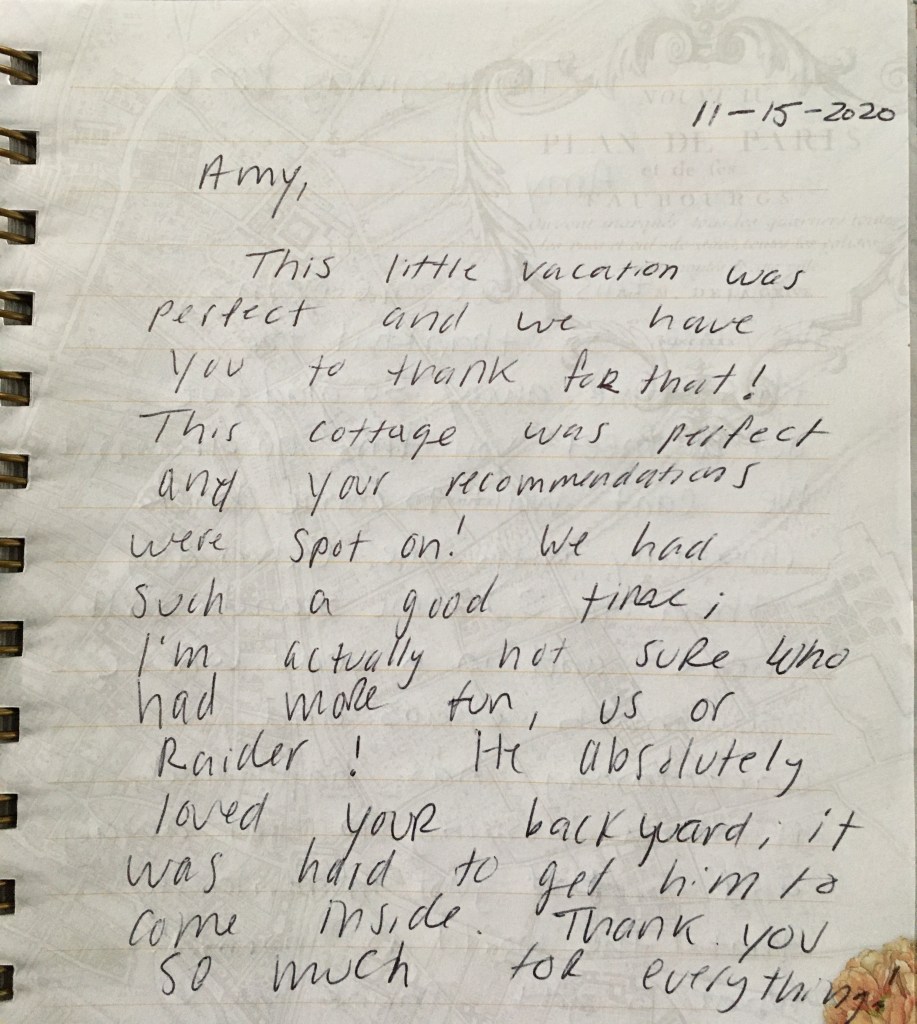 NOUVEAU
11-15-2020
PLAN DE PARIS
et de ses
FAUBOURGS
Amy,
This little vacation was
perfect and we have
you to thank for that!
This cottage was perfect
and your recommendations
were spot on! We had
such a good time;
I'm actually not sure who
had more fun, us or
Raider! He absolutely
loved your backyard; it
was hard to get him to
come inside. Thank you
so much for everything!